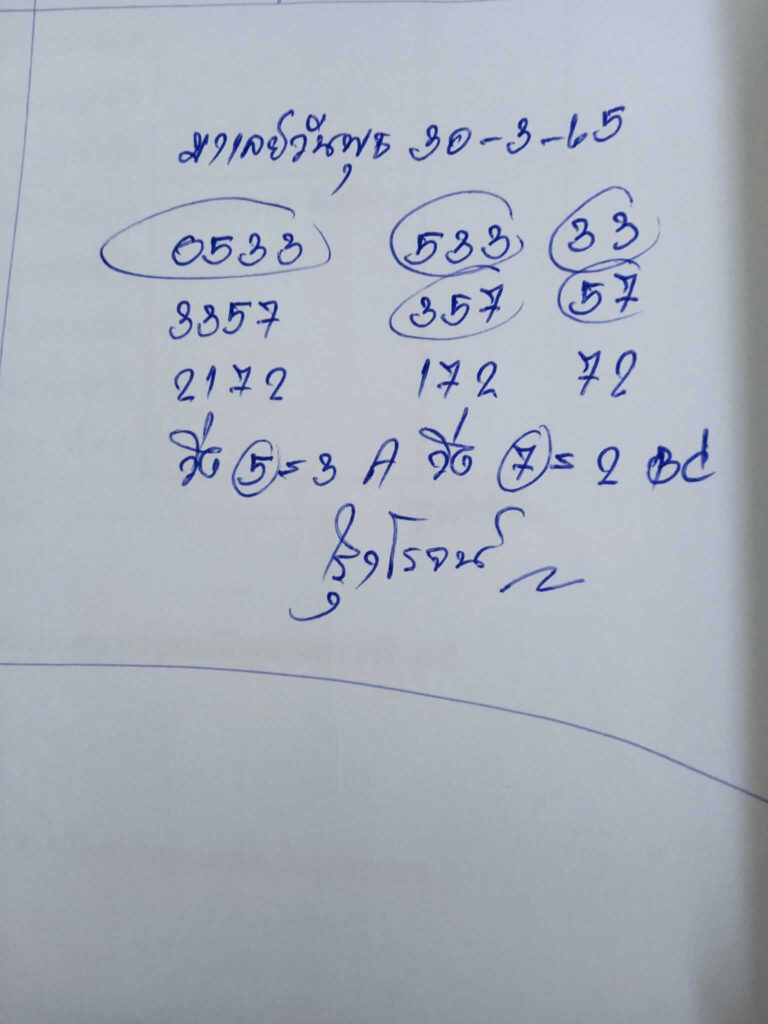 มาเลย์วันพุธ 30-3-65
0533 533 33
3357 357 57
2172 172 72
วิ่ง 5=3 A วิ่ง 7=2 BC
โรจน์